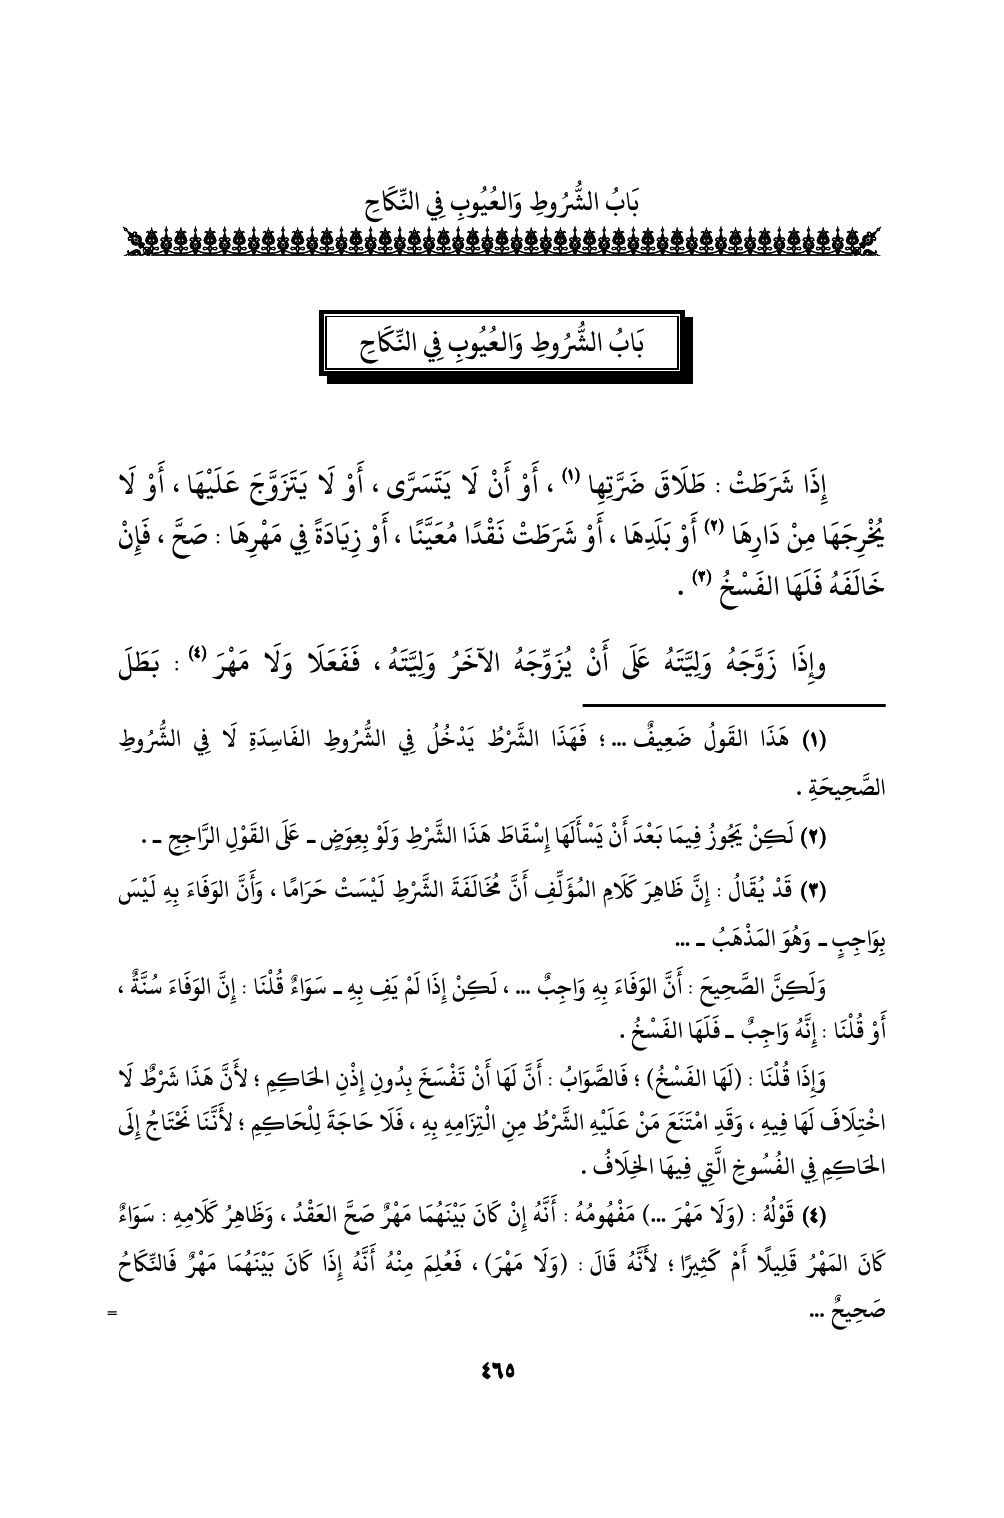 بَابُ الشُّرُوطِ وَالعُيُوبِ فِي النِّكَاحِ
بَابُ الشُّرُوطِ وَالعُيُوبِ فِي النِّكَاحِ
إِذَا شَرَطَتْ : طَلَاقَ ضَرَّتِها (١) ، أَوْ أَنْ لَا يَتَسَرَّى ، أَوْ لَا يَتَزَوَّجَ عَلَيْهَا ، أَوْ لَا
يُخْرِجَهَا مِنْ دَارِهَا (٢) أَوْ بَلَدِهَا ، أَوْ شَرَطَتْ نَقْدًا مُعَيَّنًا ، أَوْ زِيَادَةً فِي مَهْرِهَا : صَحَّ ، فَإِنْ
خَالَفَهُ فَلَهَا الفَسْخُ (٣) .
وإِذَا زَوَّجَهُ وَلِيَّتَهُ عَلَى أَنْ يُزَوِّجَهُ الآخَرُ وَلِيَّتَهُ ، فَفَعَلَا وَلَا مَهْرَ (٤) : بَطَلَ
(١) هَذَا القَولُ ضَعِيفٌ ... ؛ فَهَذَا الشَّرْطُ يَدْخُلُ فِي الشُّرُوطِ الفَاسِدَةِ لَا فِي الشُّرُوطِ
الصَّحِيحَةِ .
(٢) لَكِنْ يَجُوزُ فِيمَا بَعْدَ أَنْ يَسْأَلَهَا إِسْقَاطَ هَذَا الشَّرْطِ وَلَوْ بِعِوَضٍ ـ عَلَى القَوْلِ الرَّاجِحِ ـ .
(٣) قَدْ يُقَالُ : إِنَّ ظَاهِرَ كَلَامِ المُؤَلِّفِ أَنَّ مُخَالَفَةَ الشَّرْطِ لَيْسَتْ حَرَامًا ، وَأَنَّ الوَفَاءَ بِهِ لَيْسَ
بِوَاجِبٍ ـ وَهُوَ المَذْهَبُ ـ ...
وَلَكِنَّ الصَّحِيحَ : أَنَّ الوَفَاءَ بِهِ وَاجِبٌ ... ، لَكِنْ إِذَا لَمْ يَفِ بِهِ ـ سَوَاءٌ قُلْنَا : إِنَّ الوَفَاءَ سُنَّةٌ ،
أَوْ قُلْنَا : إِنَّهُ وَاجِبٌ ـ فَلَهَا الفَسْخُ .
وَإِذَا قُلْنَا : (لَهَا الفَسْخُ) ؛ فَالصَّوَابُ : أَنَّ لَهَا أَنْ تَفْسَخَ بِدُونِ إِذْنِ الحَاكِمِ ؛ لأَنَّ هَذَا شَرْطٌ لَا
اخْتِلَافَ لَهَا فِيهِ ، وَقَدِ امْتَنَعَ مَنْ عَلَيْهِ الشَّرْطُ مِنِ الْتِزَامِهِ بِهِ ، فَلَا حَاجَةَ لِلْحَاكِمِ ؛ لأَنَّنَا نَحْتَاجُ إِلَى
الحَاكِمِ فِي الفُسُوخِ الَّتِي فِيهَا الخِلَافُ .
(٤) قَوْلُهُ : (وَلَا مَهْرَ ...) مَفْهُومُهُ : أَنَّهُ إِنْ كَانَ بَيْنَهُمَا مَهْرٌ صَحَّ العَقْدُ ، وَظَاهِرُ كَلَامِهِ : سَوَاءٌ
كَانَ المَهْرُ قَلِيلًا أَمْ كَثِيرًا ؛ لأَنَّهُ قَالَ : (وَلَا مَهْرَ) ، فَعُلِمَ مِنْهُ أَنَّهُ إِذَا كَانَ بَيْنَهُمَا مَهْرٌ فَالنِّكَاحُ
صَحِيحٌ ... =
٤٦٥